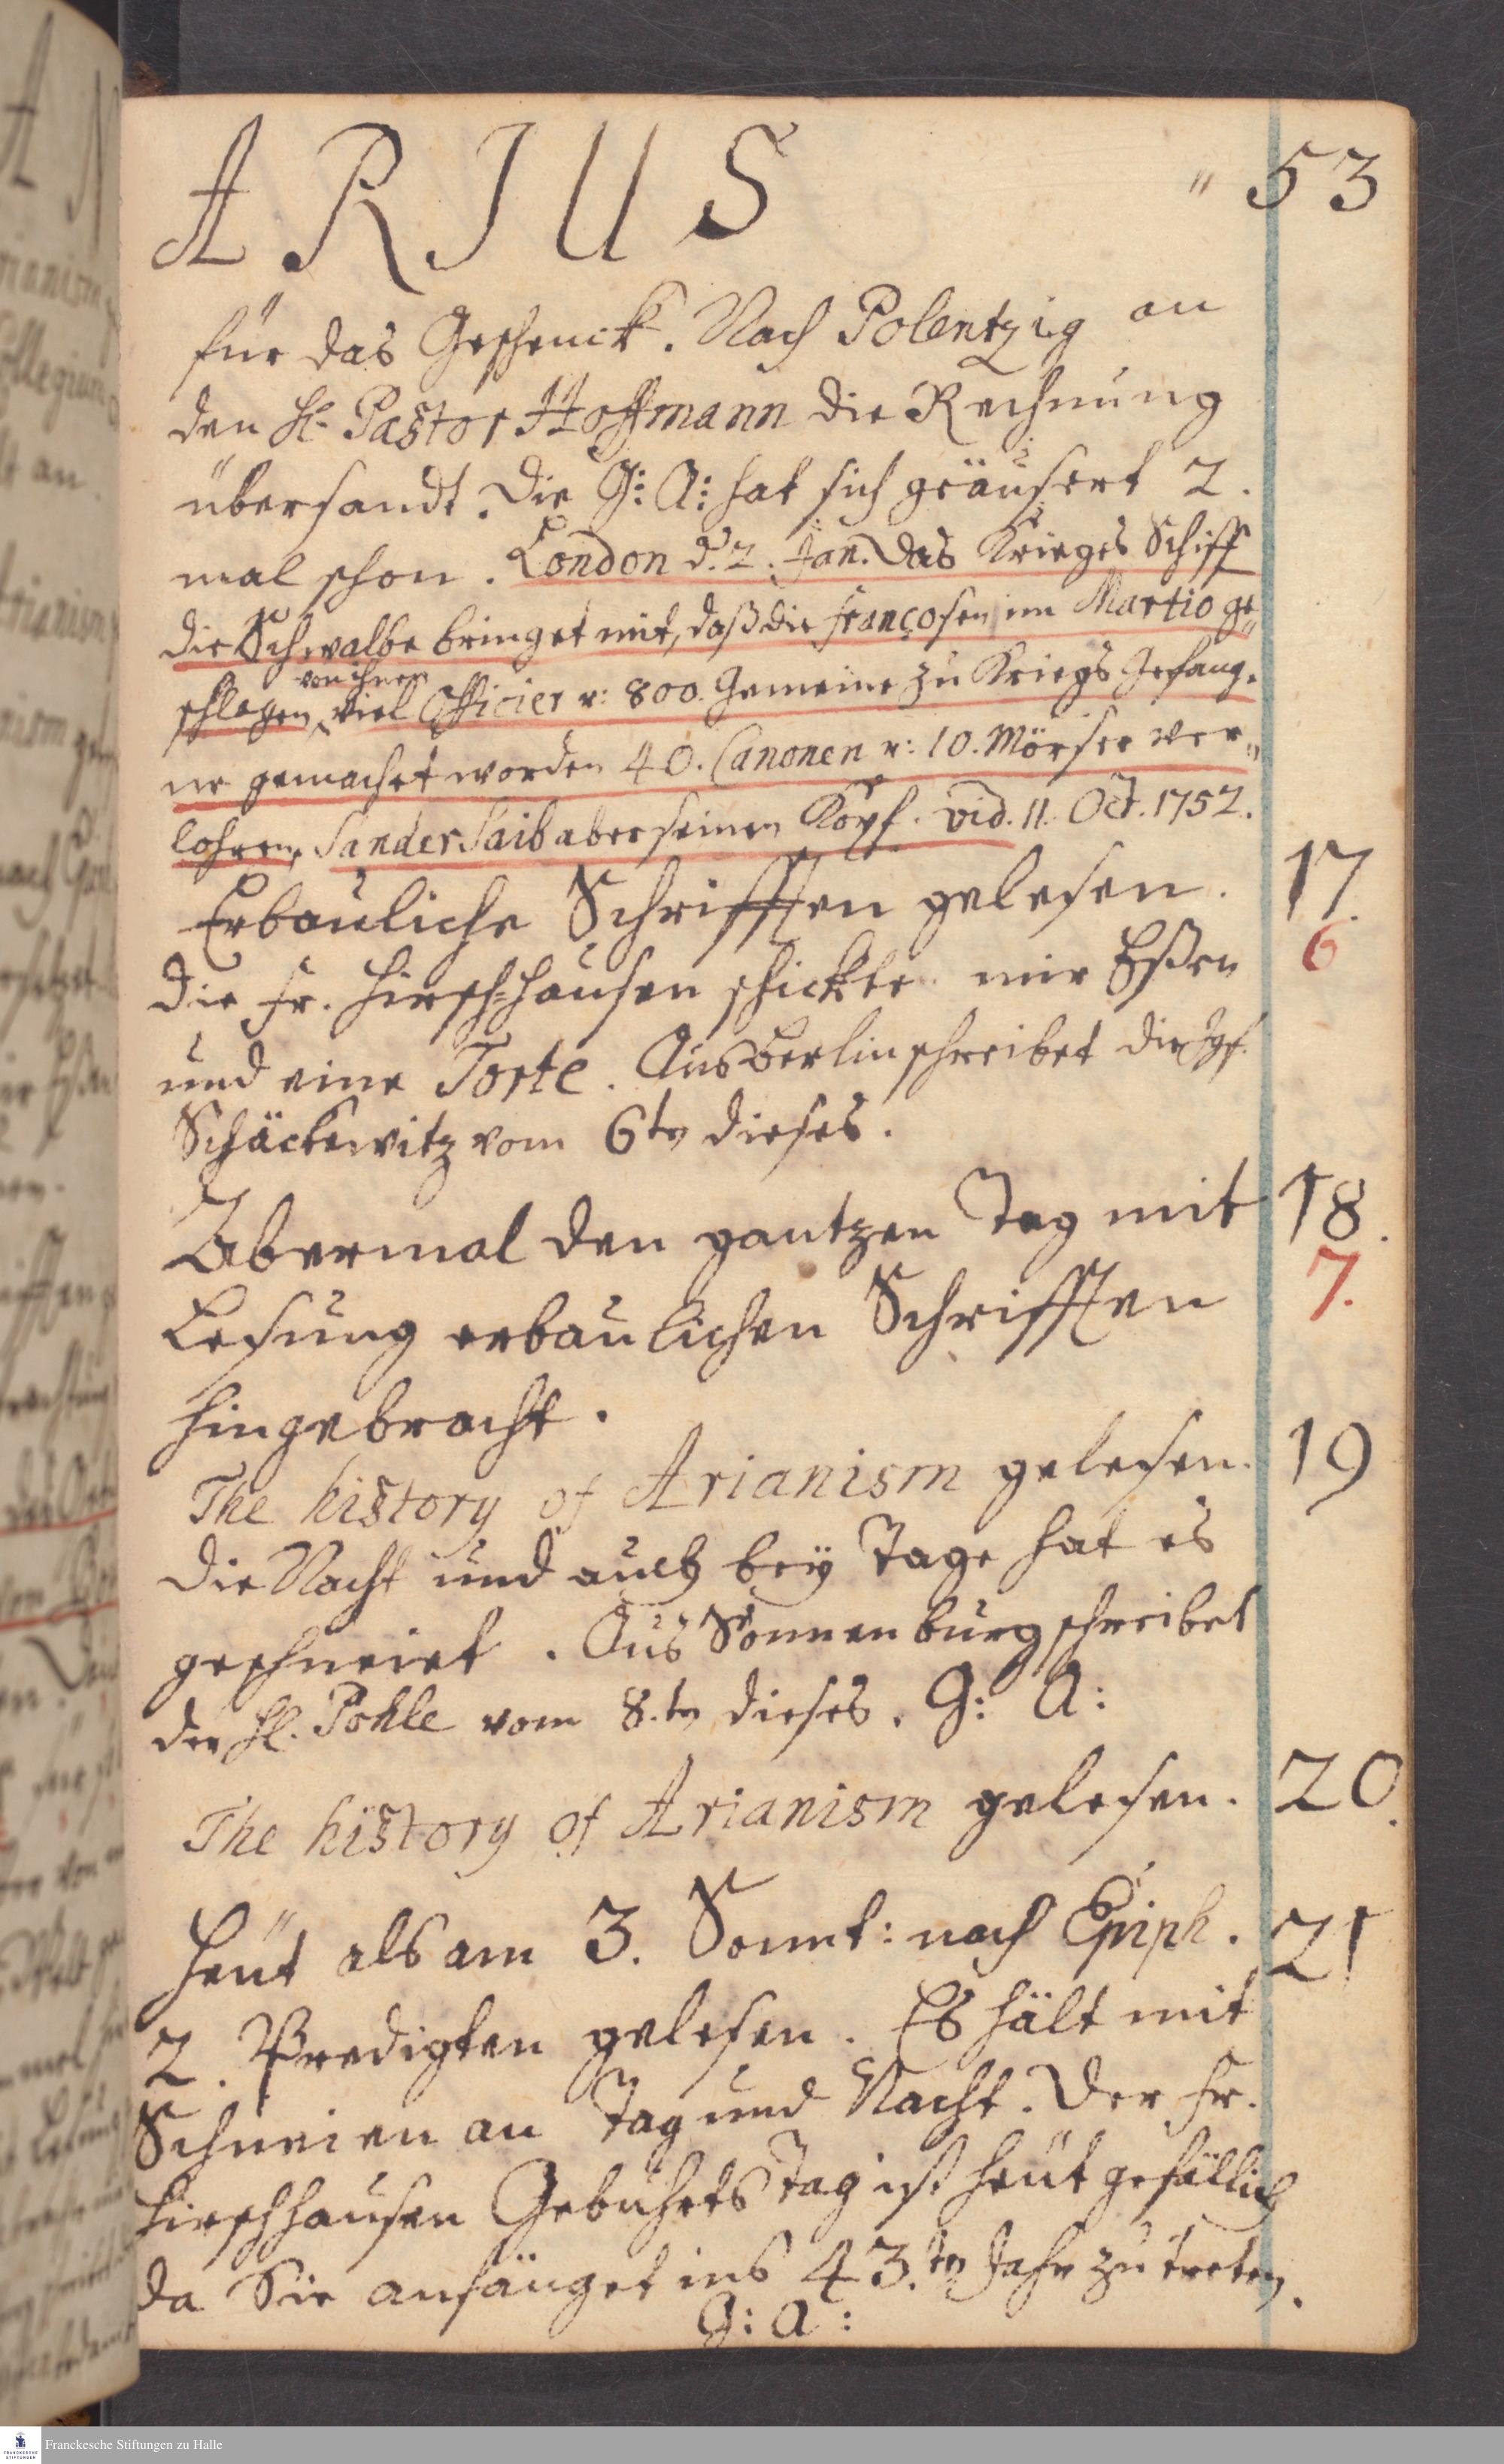 ARIUS " 53
für das Geschenck. Nach Polentzig an
den H. Pastor Hoffmann die Rechnung
übersandt. Die G: A: hat sich geäusert 2.
mal schon. London d. 2. Jan. Das Krieges Schiff
die Schwalbe bringet mit, daß die Françosen im Martio ge„
schlagen, von ihnen viel Officier u: 800. Gemeine zu Kriegs Gefang„
ne gemachet worden 40. Canonen u: 10. Mörser ver„
lohren, Sander Saib aber seinen Kopf. vid. 11. Oct. 1752.
Erbauliche Schrifften gelesen. 17.
Die Fr. Hirsch-hausen schickte mir Eßen 6
und eine Torte. Aus Berlin schreibet die Jgf.
Schäckewitz vom 6ten dieses.
Abermal den gantzen Tag mit 18.
Lesung erbaulichen Schrifften 7.
hingebracht.
The history of Arianism gelesen. 19
Die Nacht und auch bey Tage hat es
geschneiet. Aus Sonnenburg schreibet
der H. Pohle vom 8.ten dieses. G: A:
The history of Arianism gelesen. 20.
Heut als am 3. Sonnt: nach Epiph. 21
2. Predigten gelesen. Es hält mit
Schneien an Tag und Nacht. Der Fr.
Hirschhausen Gebuhrts Tag ist heut gefällich
da Sie anfänget ins 43.ten Jahr zu treten.
G: A:
Franckesche Stiftungen zu Halle